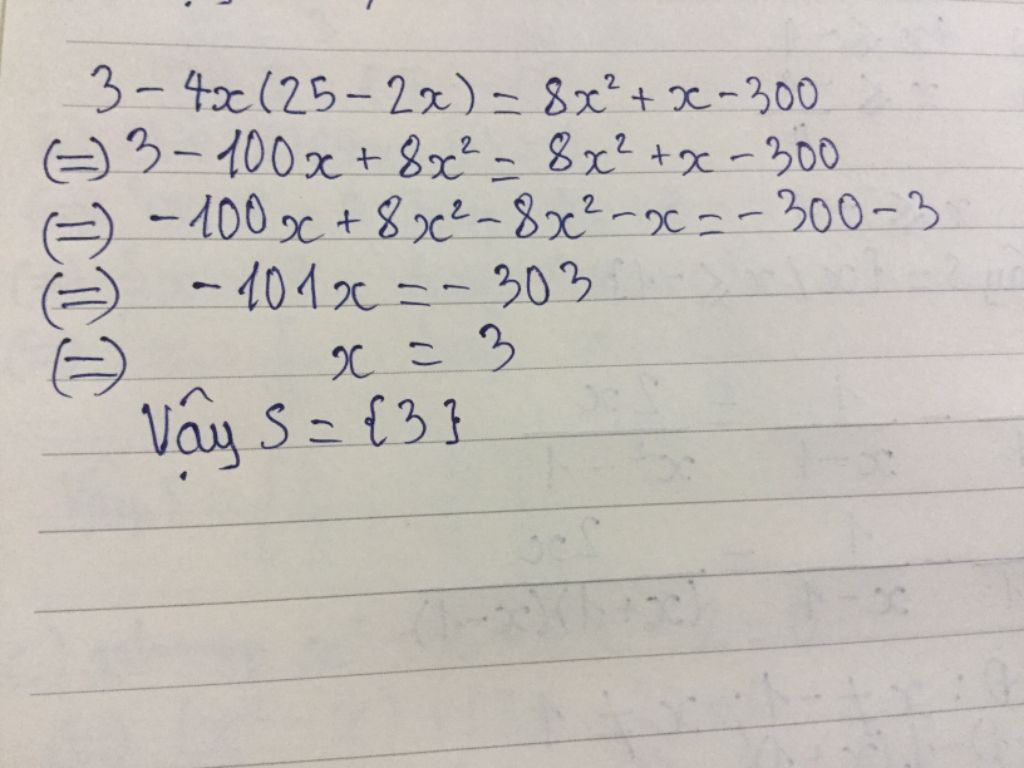 3 - 4x(25 - 2x) = 8x² + x - 300
(=) 3 - 100x + 8x² = 8x² + x - 300
(=) - 100x + 8x² - 8x² - x = - 300 - 3
(=) - 101x = - 303
(=) x = 3
Vậy S = {3}